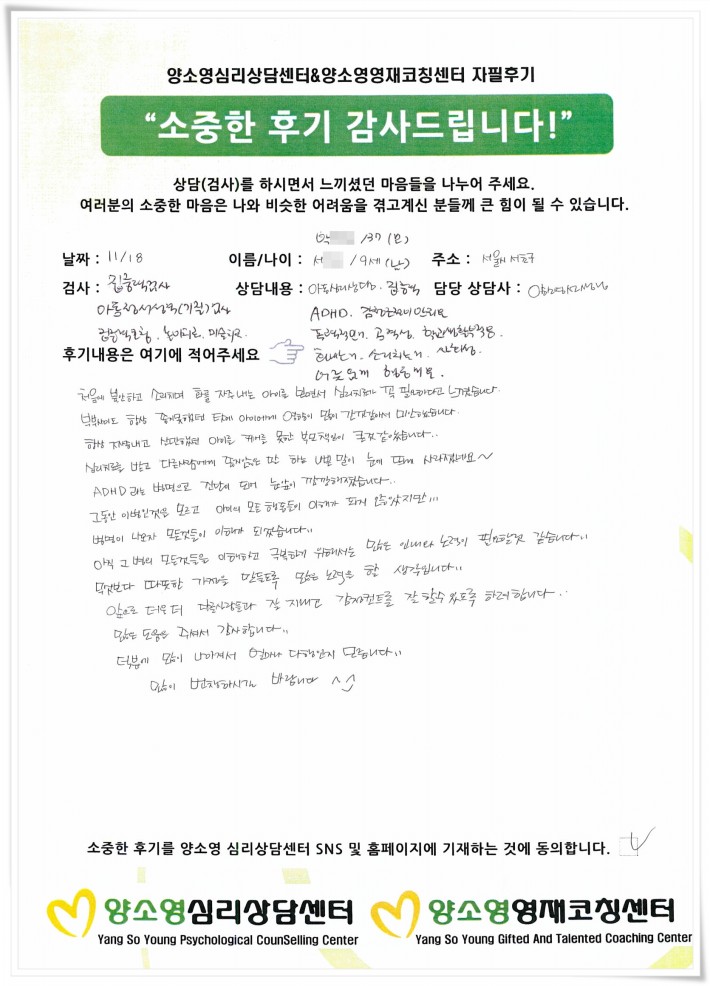 양소영심리상담센터&양소영영재코칭센터 자필후기
“소중한 후기 감사드립니다!”
상담(검사)를 하시면서 느끼셨던 마음들을 나누어 주세요.
여러분의 소중한 마음은 나와 비슷한 어려움을 겪고계신 분들께 큰 힘이 될 수 있습니다.
박 /37 (모)
날짜 : 11/18 이름/나이 : 서 /9세 (남) 주소 : 서울시 서초구
검사 : 집중력검사 상담내용 : 아동심리상담, 집중력 담당 상담사 :
아동정서성격(기질)검사 ADHD,
놀이치료, 미술치료
후기내용은 여기에 적어주세요 화내는거, 소리치는거, 사회성,
처음에 불안하고 소리치며 화를 자주내는 아이를 보면서 심리치료가 꼭 필요하다고 느꼈습니다.
항상 아이에게 영향이 많이 간것같아서 미안했습니다.
항상 짜증내고 산만했던 아이를 케어를 못한 부모책임이 클것같았습니다..
심리치료를 받고 다른사람에게 하는 나쁜 말이 눈에 띄게 사라졌네요~
ADHD라는 병명으로 진단이 되어 눈앞이 깜깜해졌습니다..
그동안 이병인것을 모르고 아이의 모든 행동들이 이해가 되지 않았지만,,,
병명이 나오자 모든것들이 이해가 되었습니다,,
아직 그 병의 모든것들을 이해하고 극복하기 위해서는 많은 인내와 노력이 필요할것 같습니다,,
무엇보다 따뜻한 가정을 만들도록 많은 노력을 할 생각입니다,,
앞으로 더욱더 다른사람들과 잘 지내고 감정컨트롤 잘 할수 있도록 하려 합니다..
많은 도움을 주셔서 감사합니다,,
덕분에 많이 나아져서 얼마나 다행인지 모릅니다,,
많이 번창하시길 바랍니다 ^^
소중한 후기를 양소영 심리상담센터 SNS 및 홈페이지에 기재하는 것에 동의합니다.
양소영심리상담센터 양소영영재코칭센터
Yang So Young Psychological CounSelling Center Yang So Young Gifted And Talented Coaching Center